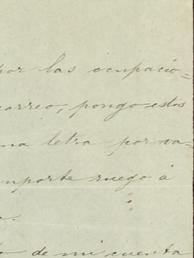 por las ocupacio=
correo, pongo estos
na letra por va-
mporte ruego á
de mi cuenta